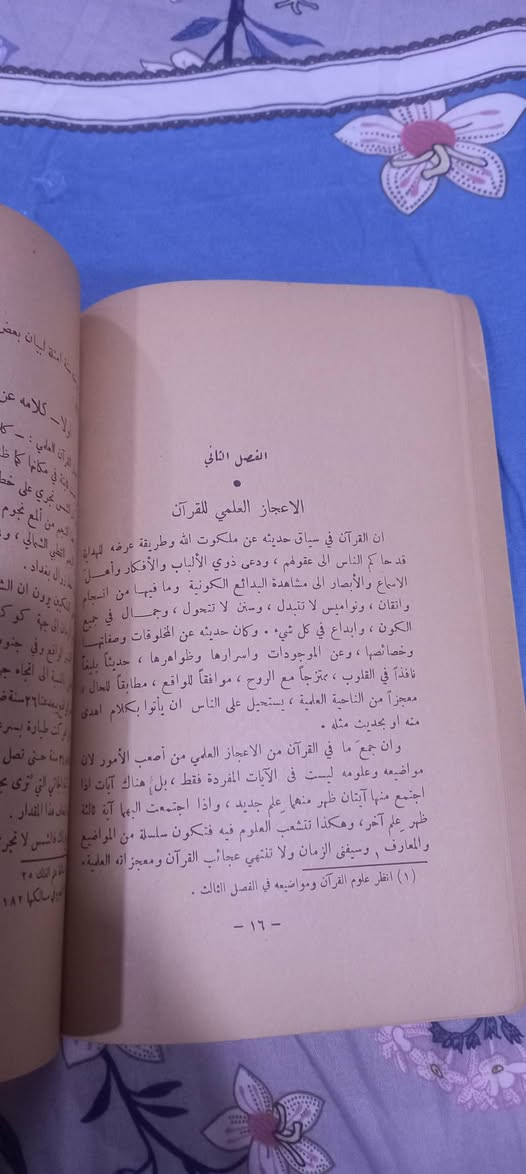 الفصل الثاني
الاعجاز العلمي للقرآن
ان القرآن في سياق حديثه عن ملكوت الله وطريقة عرضه للهداية
قد حاكم الناس الى عقولهم ، ودعى ذوي الألباب والأفكار وأهل
الاسماع والأبصار الى مشاهدة البدائع الكونية وما فيها من انسجام
واتقان ، ونواميس لا تتبدل ، وسنن لا تتحول ، وجمال في جميع
الكون ، وابداع في كل شيء . وكان حديثه عن المخلوقات وصفاتها
وخصائصها ، وعن الموجودات واسرارها وظواهرها ، حديثاً بليغاً
نافذاً في القلوب ، ممتزجاً مع الروح ، موافقاً للواقع ، مطابقاً للحال ،
معجزاً من الناحية العلمية ، يستحيل على الناس ان يأتوا بكلام اهدى
منه او بحديث مثله .
وان جمع ما في القرآن من الاعجاز العلمي من أصعب الأمور لان
مواضيعه وعلومه ليست في الآيات المفردة فقط ، بل هناك آيات اذا
اجتمع منها آيتان ظهر منهما علم جديد ، واذا اجتمعت اليهما آية ثالثة
ظهر علم آخر ، وهكذا تتشعب العلوم فيه فتكون سلسلة من المواضيع
والمعارف ، وسيفنى الزمان ولا تنتهي عجائب القرآن ومعجزاته العلمية .
(١) انظر علوم القرآن ومواضيعه في الفصل الثالث .
– ١٦ –
امثلة لبيان بعض
كلامه عن
القرآن العلمي : – كلا
في مكانها كما
تجري على خط
من ألمع نجوم
القطبي الشمالي ، و
بغداد .
يرون ان الش
الى جهة كوكب
الى اتجاه
٣٦ سنة
طيارة بسرعة
سنة حتى تصل
التي تُرى
هذا المقدار .
فالشمس لا تجر
الفلك ٢٥
١٨٢